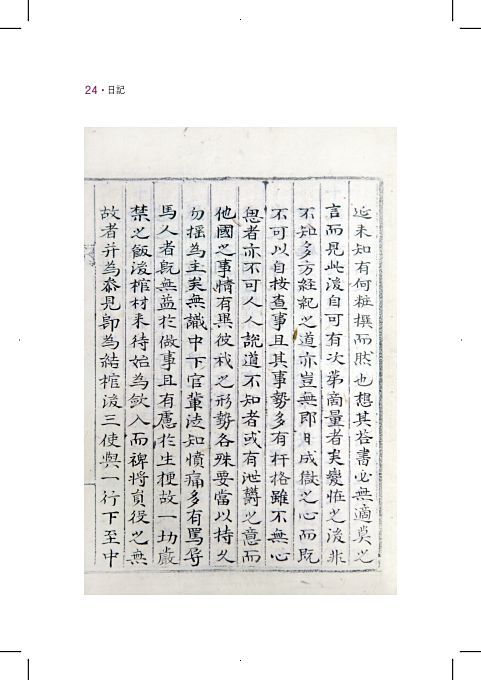 24・日記
近未知有何粧撰而然也想其答書必無適莫之
言而見此後自可有次苐啇量者矣變恠之後非
不知多方經紀之道亦豈無卽日成獄之心而旣
不可以自按查事且其事勢多有扞格雖不無心
思者亦不可人人說道不知者或有泄欝之意而
他國之事情有異彼我之形勢各殊要當以持久
勿摇為主矣無識中下官輩徒知憤痛多有罵辱
馬人者旣無益於做事且有慮於生梗故一切嚴
禁之飯後棺材来待始為歛入而裨將員役之無
故者并為叅見卽為結棺後三使與一行下至中